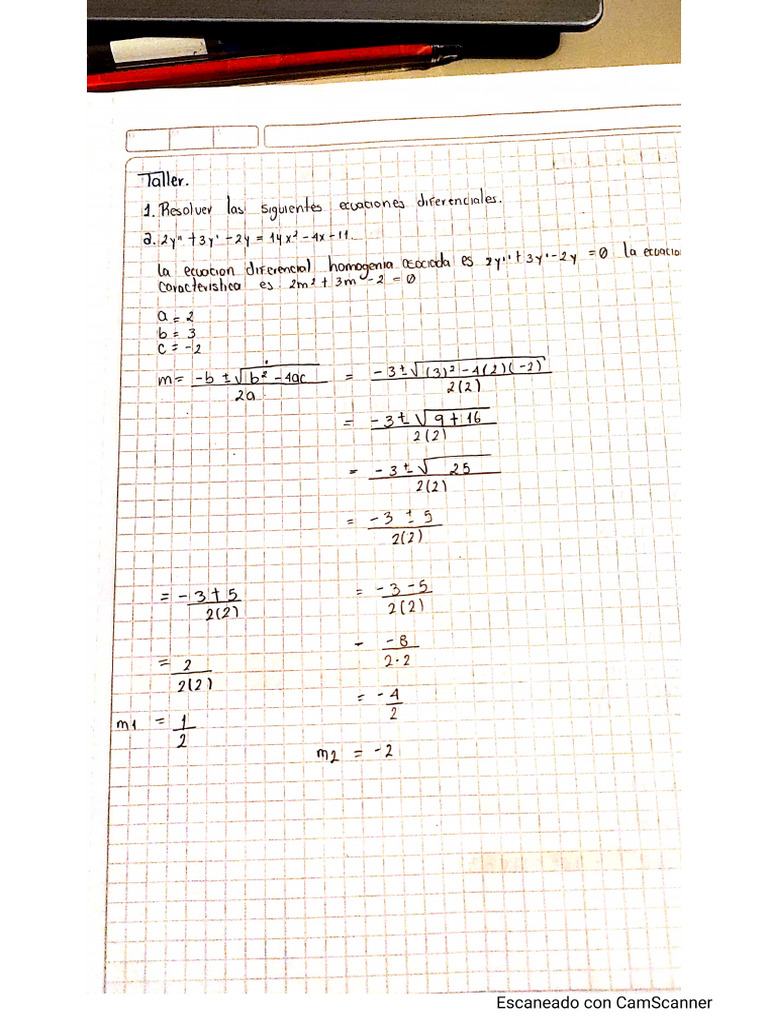 Taller.
1. Resolver las siguientes ecuaciones diferenciales.
a. 2y'' + 3y' - 2y = 14x² - 4x - 11.
la ecuacion diferencial homogenia asociada es 2y'' + 3y' - 2y = 0 la ecuacio
caracteristica es 2m² + 3m - 2 = 0
a = 2
b = 3
c = -2
m = -b ± √b² - 4ac / 2a = -3 ± √(3)² - 4(2)(-2) / 2(2)
= -3 ± √9 + 16 / 2(2)
= -3 ± √25 / 2(2)
= -3 ± 5 / 2(2)
= -3 + 5 / 2(2) = -3 - 5 / 2(2)
= 2 / 2(2) - -8 / 2·2
m1 = 1 / 2 = -4 / 2
m2 = -2
Escaneado con CamScanner